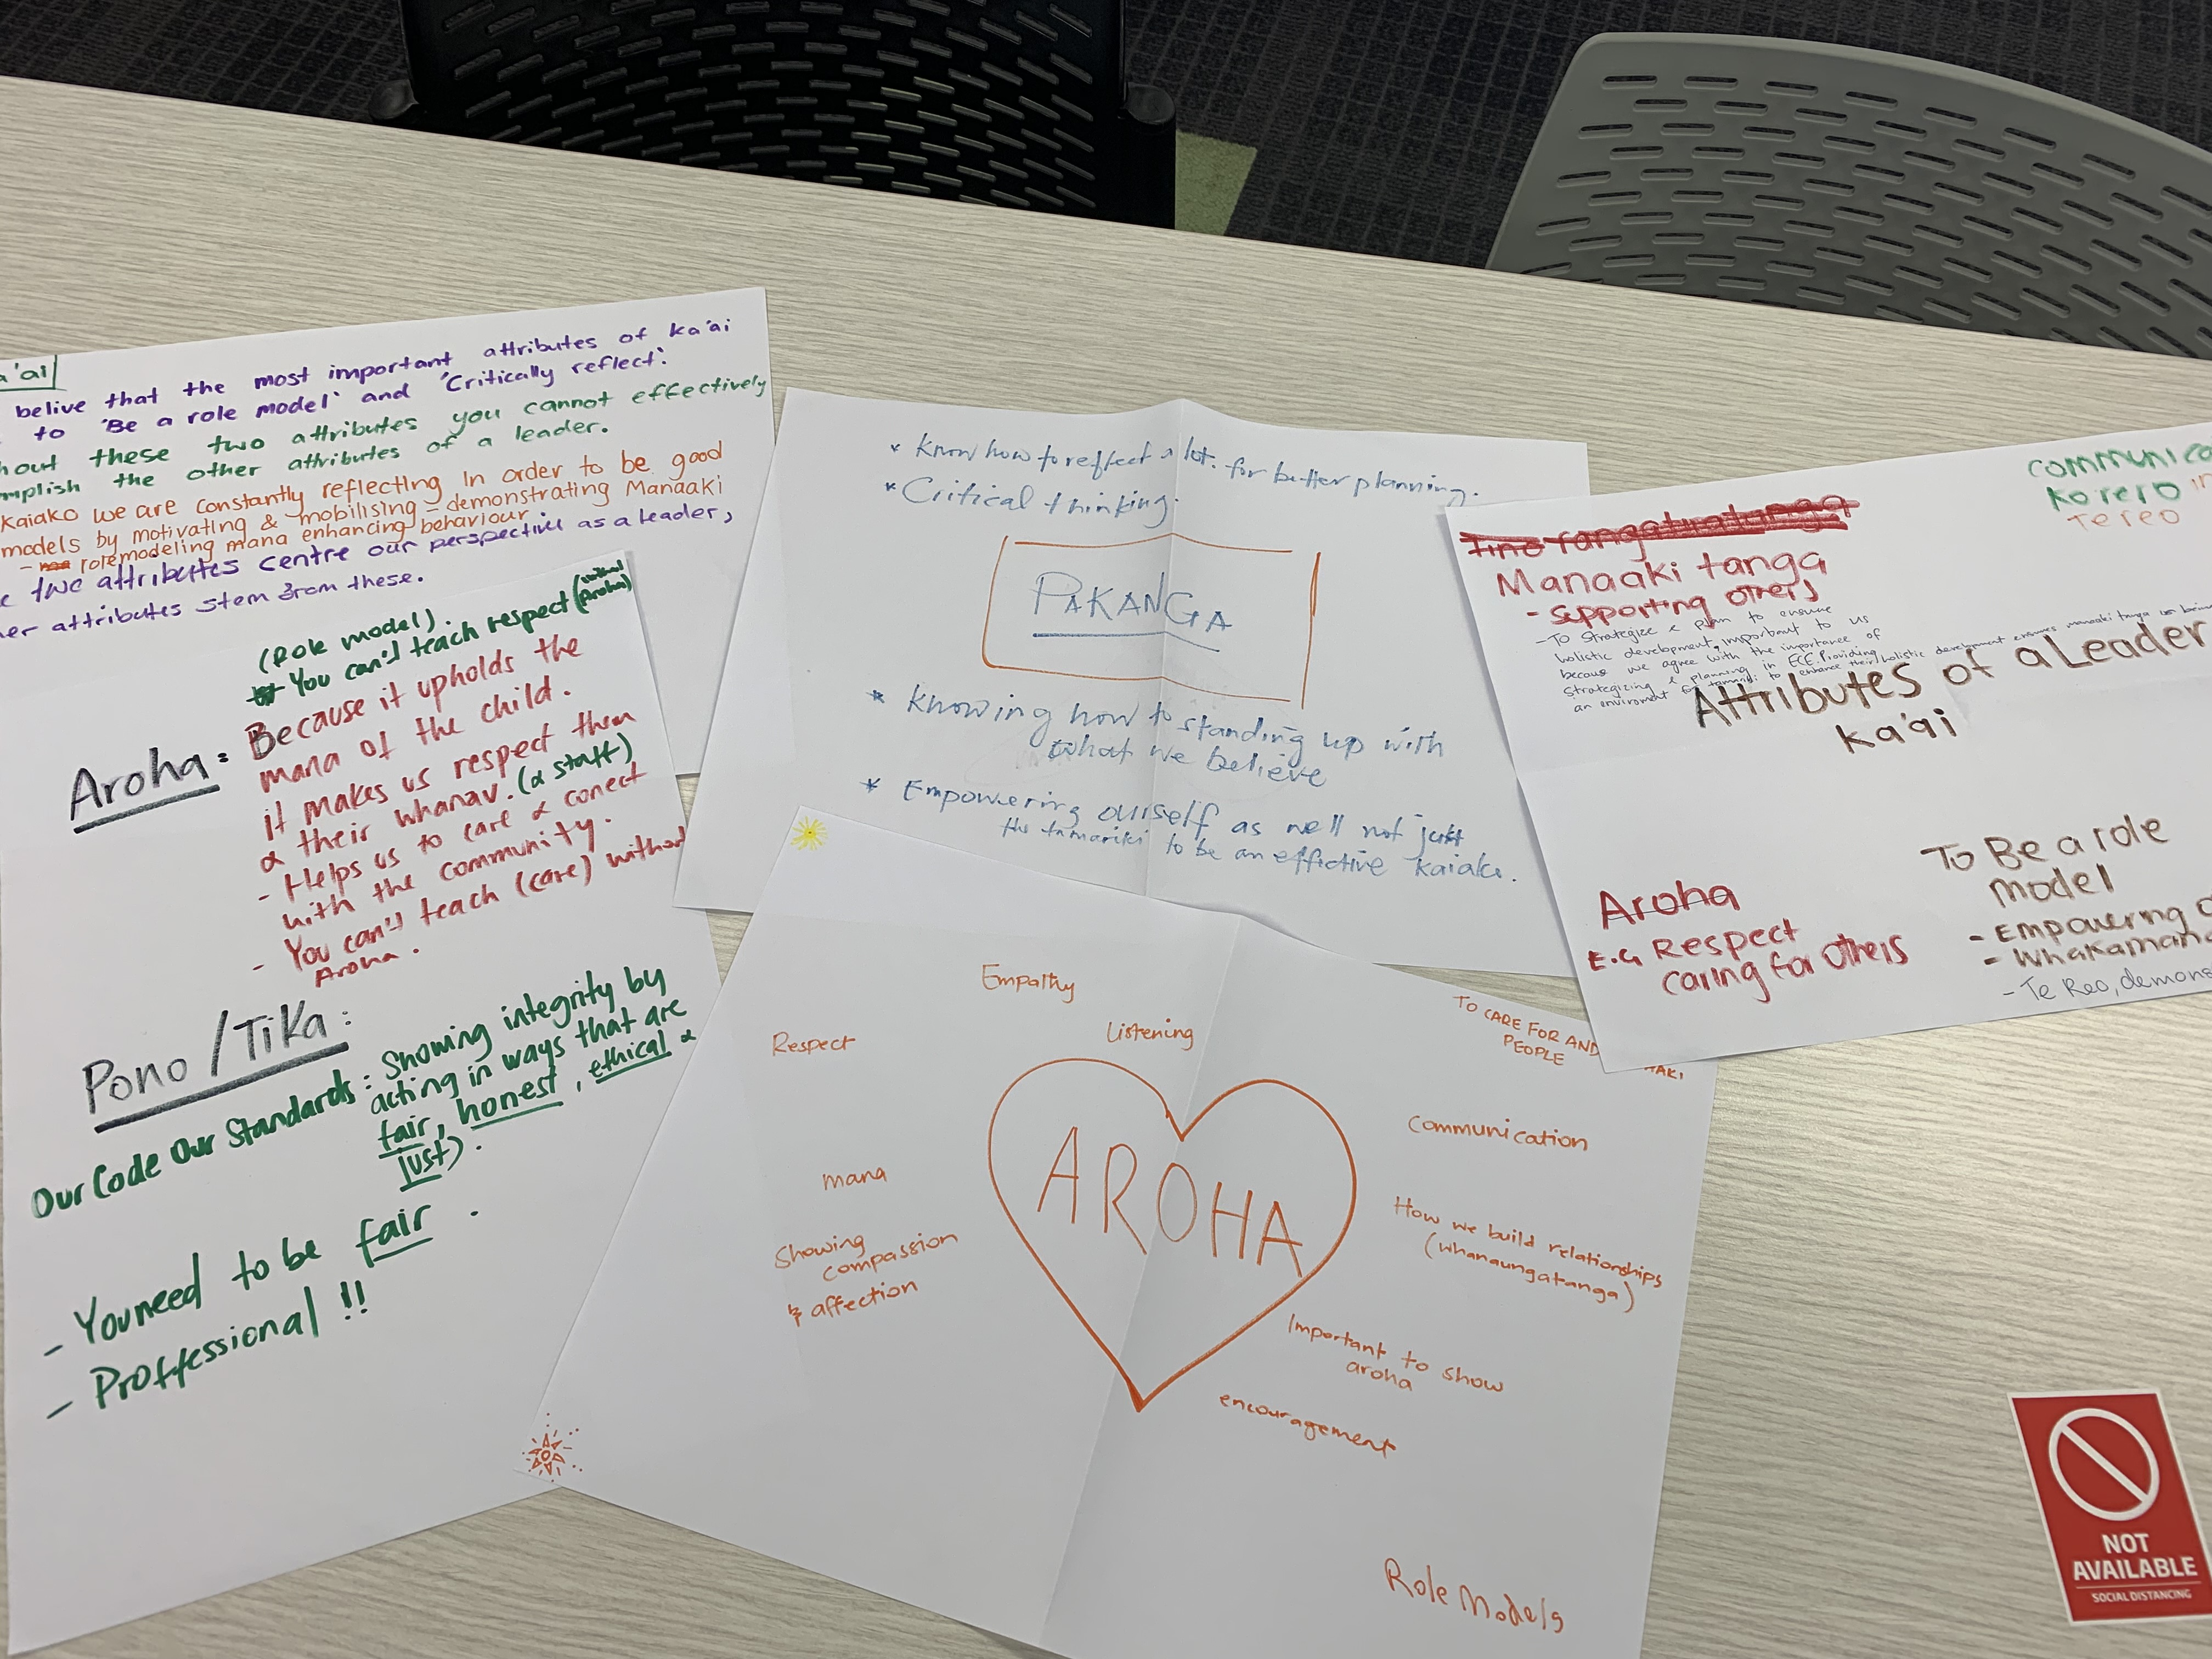 a'ai
belive that the most important attributes of ka'ai
to 'Be a role model' and 'Critically reflect'.
hout these two attributes you cannot effectively
mplish the other attributes of a leader.
Kaiako we are constantly reflecting in order to be good
models by motivating & mobilising - demonstrating Manaaki
- rolemodeling mana enhancing behaviour
two attributes centre our perspective as a leader,
er attributes stem from these.
(Role model).
You can't teach respect (without Aroha)
Aroha: Because it upholds the
mana of the child.
it makes us respect them
& their whanau. (& staff)
- Helps us to care & conect
with the community.
- You can't teach (care) without
Aroha.
Pono / Tika:
Our Code Our Standards: Showing integrity by
acting in ways that are
fair, honest, ethical &
just).
- You need to be fair.
- Proffessional !!
* Know how to reflect a lot. for better planning.
* Critical thinking.
PAKANGA
* Knowing how to standing up with
what we believe
* Empowering ourself as well not just
the tamariki to be an effective kaiako.
Empathy
Respect
Listening
TO CARE FOR AND
PEOPLE
AKI
mana
Communication
AROHA
Showing
compassion
& affection
How we build relationships
(whanaungatanga)
Important to show
aroha
encouragement
Role Models
Communica
Ko'rero in
Te reo
Tino rangatiratanga
Manaaki tanga
- Supporting others
- To strategize & plan to ensure
holistic development, important to us
becaus we agree with the importance of
strategizing & planning in ECE. Providing
an enviroment for tamariki to enhance their holistic development ensures manaaki tanga
Attributes of a Leader
ka'ai
Aroha
E.G Respect
caring for others
To Be a role
model
- Empowering
- Whakamana
- Te Reo, demons
NOT
AVAILABLE
SOCIAL DISTANCING